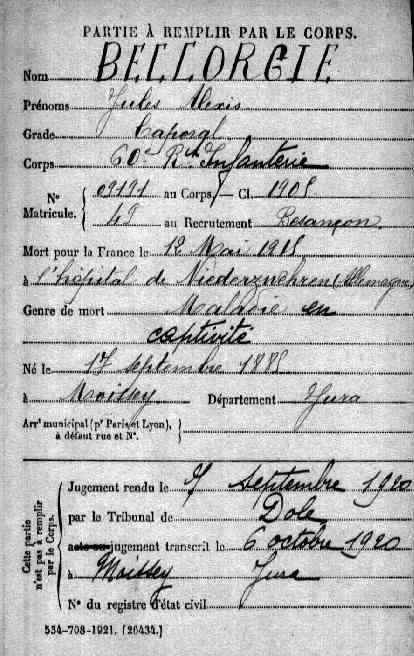 PARTIE À REMPLIR PAR LE CORPS.
Nom BELLORGIE
Prénoms Jules Alexis
Grade Caporal
Corps 60e Rt Infanterie
N° Matricule. { 09191 au Corps. — Cl. 1905
au Recrutement Besançon
Mort pour la France le 12 Mai 1915
à l'hôpital de Niederzwehren (Allemagne)
Genre de mort Maladie en
captivité
Né le 17 septembre 1885
à Moissey Département Jura
Arrt municipal (pr Paris et Lyon), à défaut rue et N°. }
Cette partie n'est pas à remplir par le Corps.
Jugement rendu le septembre 1920
par le Tribunal de Dole
acte ou jugement transcrit le 6 octobre 1920
à Moissey Jura
N° du registre d'état civil
534-708-1921. [26434.]